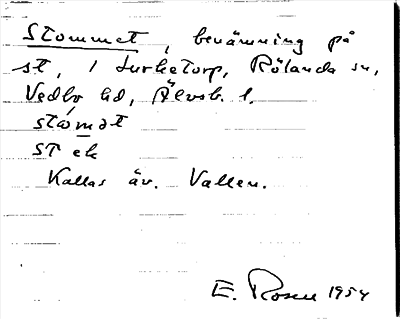 Stommet, benämning på
st, 1 Lurketorp, Rölanda sn,
Vedbo hd, Älvsb. l.
stómət
ST ek
Kallas äv. Vallen.
E. Rosen 1954